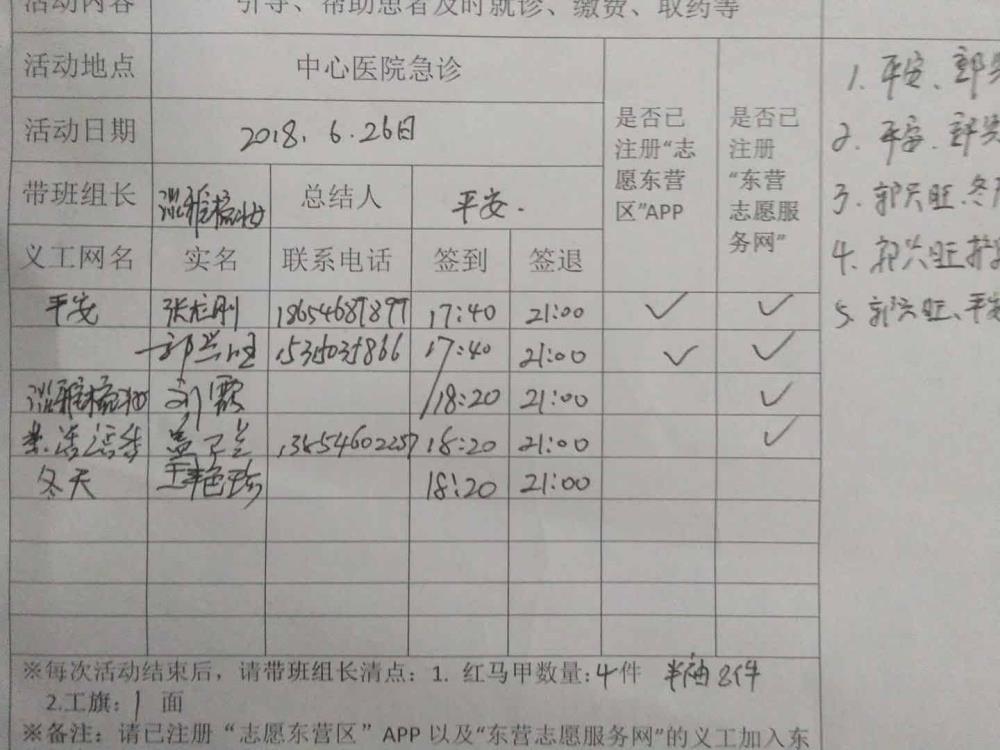 活动内容 引导、帮助患者及时就诊、缴费、取药等
活动地点 中心医院急诊 是否已注册“志愿东营区”APP 是否已注册“东营志愿服务网”
活动日期 2018.6.26日
带班组长 总结人 平安.
义工网名 实名 联系电话 签到 签退
平安 张龙刚 18654687897 17:40 21:00 ✓ ✓
郭兴旺 17:40 21:00 ✓ ✓
刘霞 18:20 21:00 ✓
18:20 21:00 ✓
冬天 18:20 21:00
※每次活动结束后，请带班组长清点：1. 红马甲数量:4件 半袖8件
2.工旗：1 面
※备注：请已注册“志愿东营区”APP 以及“东营志愿服务网”的义工加入东
1. 平安、郭
2. 平安.郭
3. 郭兴旺.冬
4. 郭兴旺
5. 郭兴旺、平安